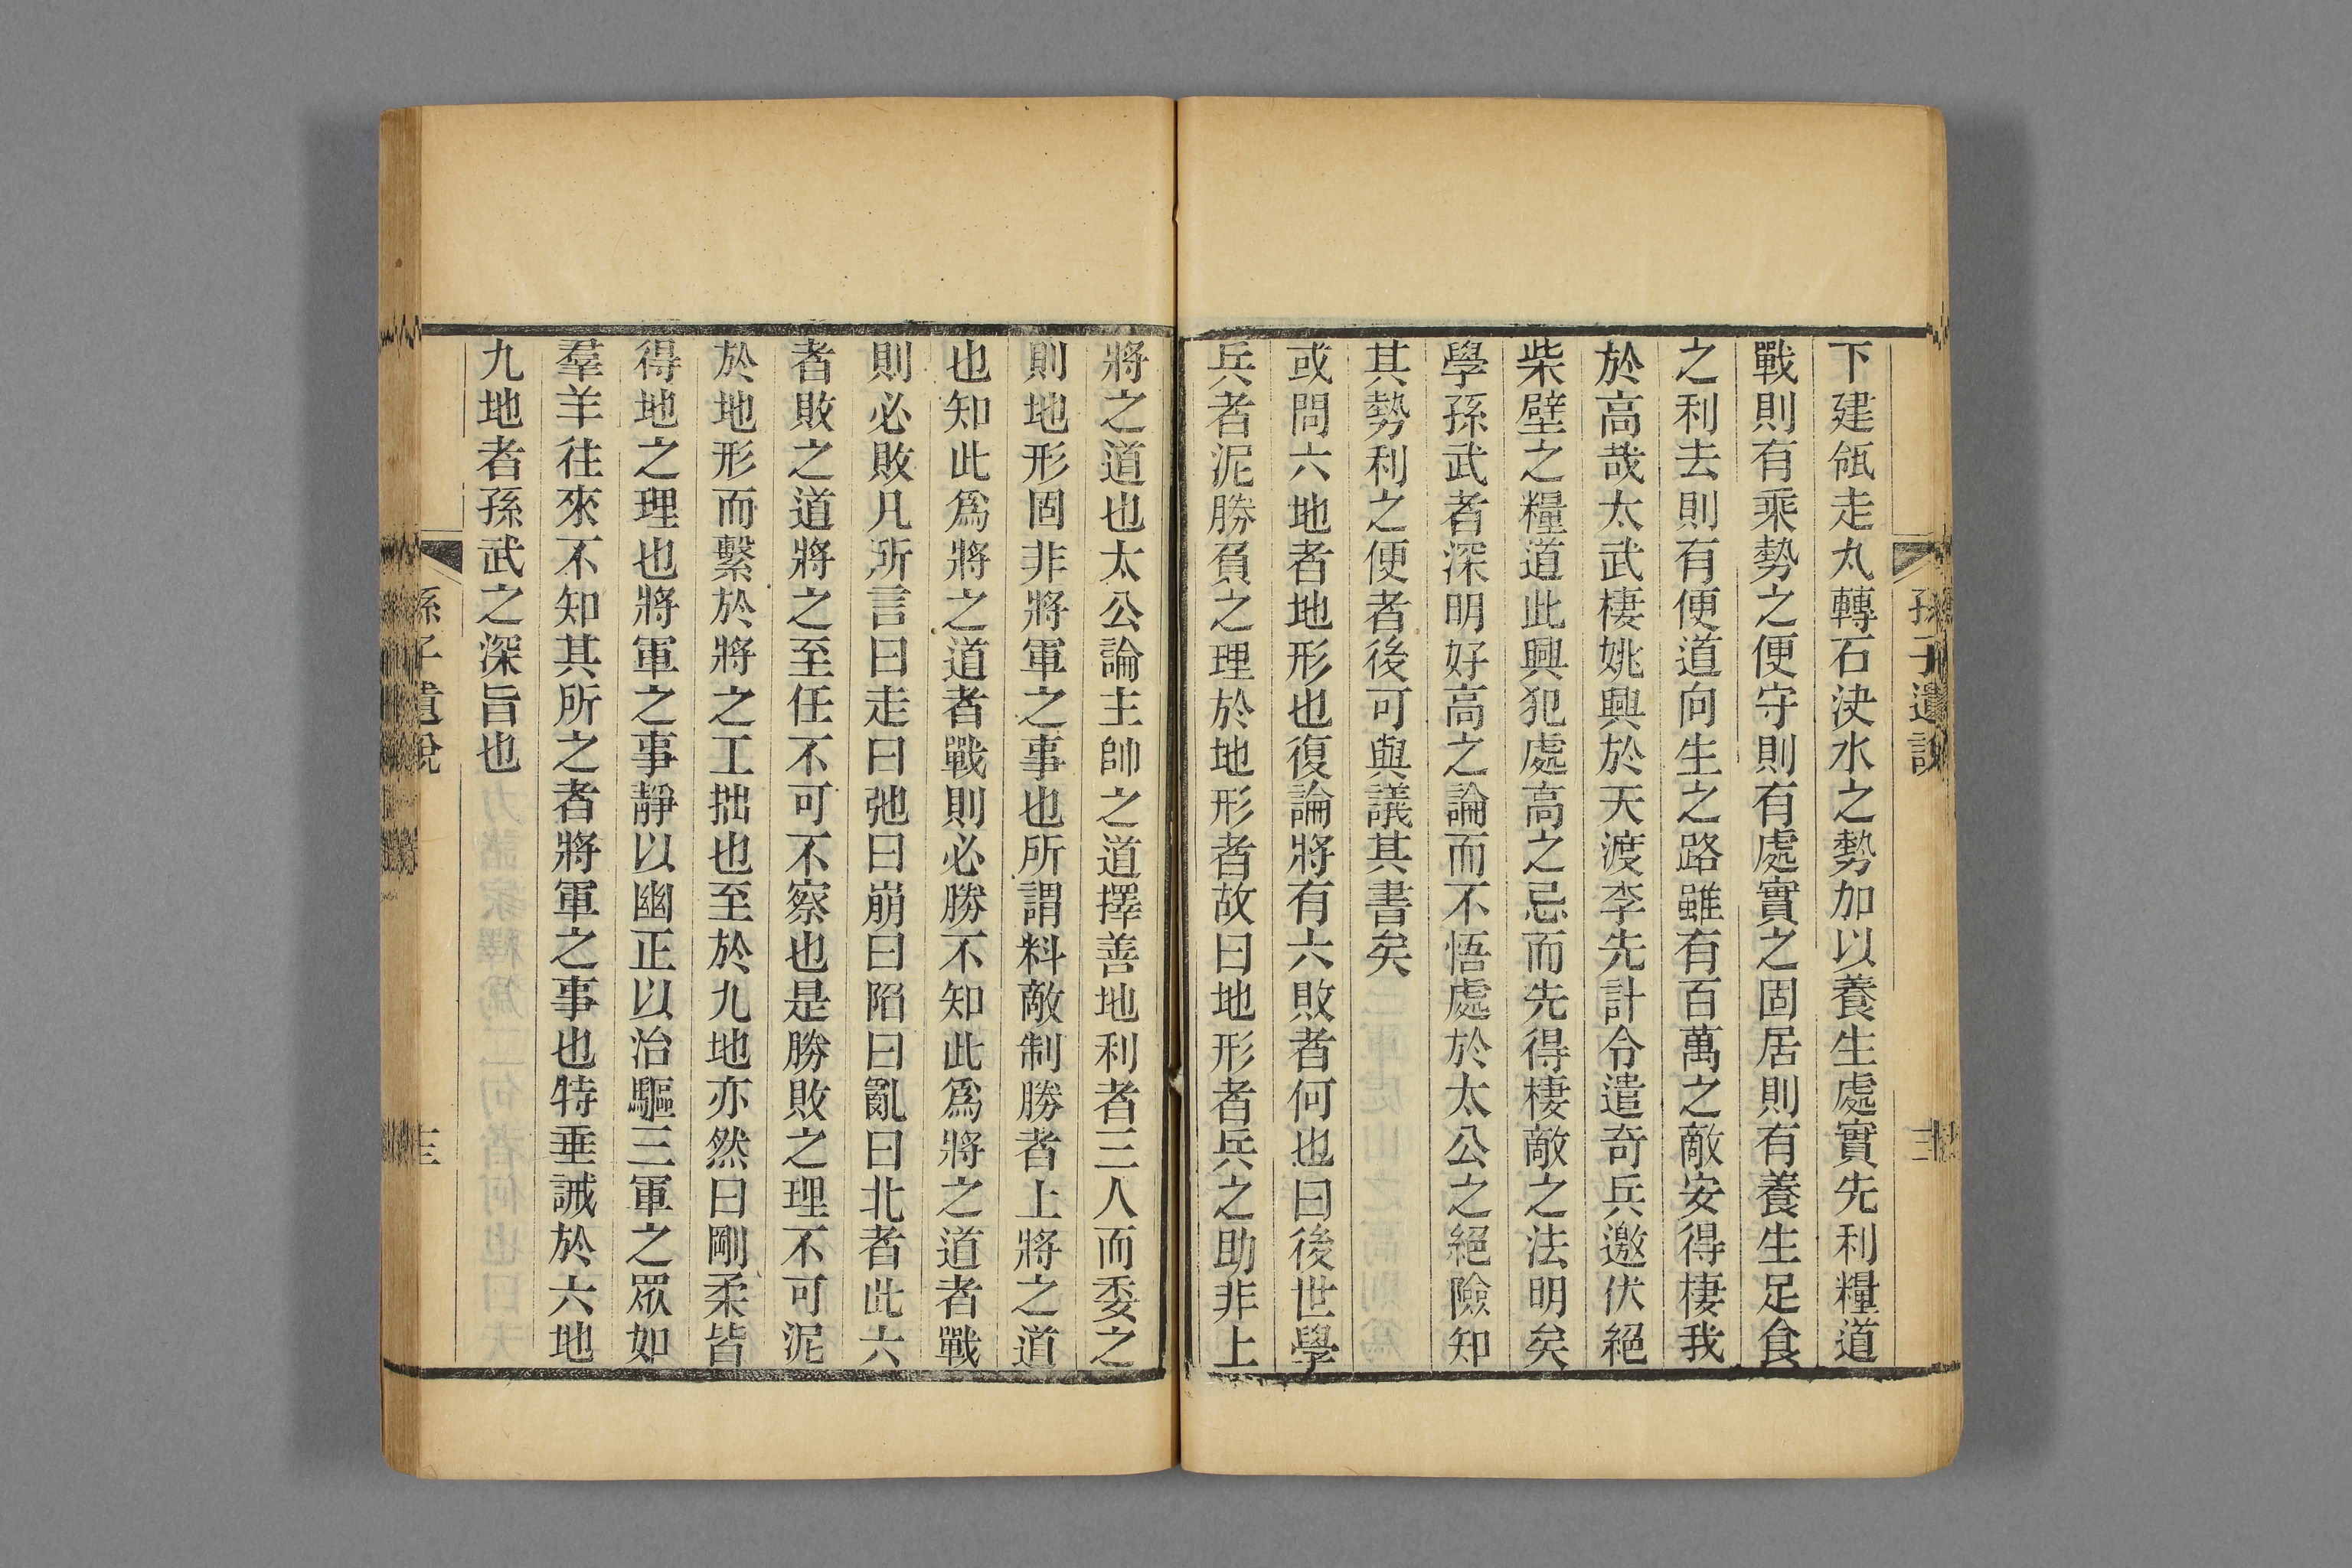 孫子遺說
下建瓴走丸轉石決水之勢加以養生處實先利糧道
戰則有乘勢之便守則有處實之固居則有養生足食
之利去則有便道向生之路雖有百萬之敵安得棲我
於高哉太武棲姚興於天渡李先計令遣奇兵邀伏絕
柴壁之糧道此興犯處高之忌而先得棲敵之法明矣
學孫武者深明好高之論而不悟處於太公之絕險知
其勢利之便者後可與議其書矣
或問六地者地形也復論將有六敗者何也曰後世學
兵者泥勝負之理於地形者故曰地形者兵之助非上
將之道也太公論主帥之道擇善地利者三人而委之
則地形固非將軍之事也所謂料敵制勝者上將之道
也知此爲將之道者戰則必勝不知此爲將之道者戰
則必敗凡所言曰走曰弛曰崩曰陷曰亂曰北者此六
者敗之道將之至任不可不察也是勝敗之理不可泥
於地形而繫於將之工拙也至於九地亦然曰剛柔皆
得地之理也將軍之事靜以幽正以治驅三軍之眾如
羣羊往來不知其所之者將軍之事也特垂誡於六地
九地者孫武之深旨也
孫子遺說